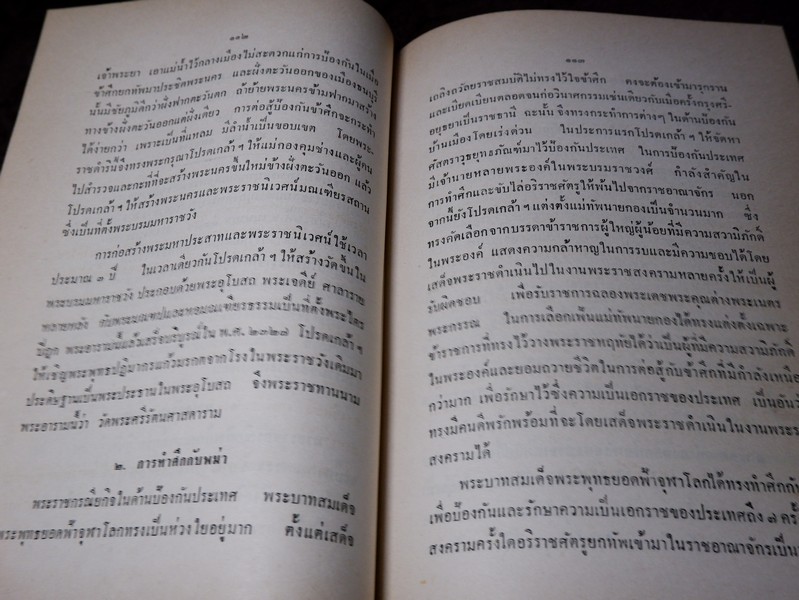 ๑๑๒
เจ้าพระยา เอาแม่น้ำไว้กลางเมืองไม่สะดวกแก่การป้องกันในเมื่อ
ข้าศึกยกทัพมาประชิดพระนคร และฝั่งตะวันออกของเมืองธนบุรี
นั้นมีชัยภูมิดีกว่าฝั่งฟากตะวันตก ถ้าย้ายพระนครข้ามฟากมาสร้าง
ทางข้างฝั่งตะวันออกแต่ฝั่งเดียว การต่อสู้ป้องกันข้าศึกจะกระทำ
ได้ง่ายกว่า เพราะเป็นที่แหลม มีลำน้ำเป็นขอบเขต โดยพระ-
ราชดำรินี้จึงทรงพระกรุณาโปรดเกล้า ฯ ให้แม่กองคุมช่างและผู้คน
ไปสำรวจและกะที่ที่จะสร้างพระนครขึ้นใหม่ข้างฝั่งตะวันออก แล้ว
โปรดเกล้า ฯ ให้สร้างพระนครและพระราชนิเวศน์มณเฑียรสถาน
ซึ่งเป็นที่ตั้งพระบรมมหาราชวัง
การก่อสร้างพระมหาปราสาทและพระราชนิเวศน์ใช้เวลา
ประมาณ ๓ ปี ในเวลาเดียวกันโปรดเกล้า ฯ ให้สร้างวัดขึ้นใน
พระบรมมหาราชวัง ประกอบด้วยพระอุโบสถ พระเจดีย์ ศาลาราย
หลายหลัง กับพระมณฑปและหอมณเฑียรธรรมเป็นที่ตั้งพระไตร
ปิฎก พระอารามนี้แล้วเสร็จบริบูรณ์ใน พ.ศ. ๒๓๒๗ โปรดเกล้า ฯ
ให้เชิญพระพุทธปฏิมากรแก้วมรกตจากโรงในพระราชวังเดิมมา
ประดิษฐานเป็นพระประธานในพระอุโบสถ จึงพระราชทานนาม
พระอารามนี้ว่า วัดพระศรีรัตนศาสดาราม
๒. การทำศึกกับพม่า
พระราชกรณียกิจในด้านป้องกันประเทศ พระบาทสมเด็จ
พระพุทธยอดฟ้าจุฬาโลกทรงเป็นห่วงใยอยู่มาก ตั้งแต่เสด็จ
๑๑๓
เถลิงถวัลยราชสมบัติไม่ทรงไว้ใจข้าศึก คงจะต้องเข้ามารุกราน
และเบียดเบียนตลอดจนก่อวินาศกรรมเช่นเดียวกับเมื่อครั้งกรุงศรี-
อยุธยาเป็นราชธานี ฉะนั้น จึงทรงกระทำการต่างๆ ในด้านป้องกัน
บ้านเมืองโดยเร่งด่วน ในประการแรกโปรดเกล้า ฯ ให้จัดหา
ศัสตราวุธยุทธภัณฑ์มาไว้ป้องกันประเทศ ในการป้องกันประเทศ
มีเจ้านายหลายพระองค์ในพระบรมราชวงศ์ กำลังสำคัญใน
การทำศึกและขับไล่อริราชศัตรูให้พ้นไปจากราชอาณาจักร นอก
จากนี้ยังโปรดเกล้า ฯ แต่งตั้งแม่ทัพนายกองเป็นจำนวนมาก ซึ่ง
ทรงคัดเลือกจากบรรดาข้าราชการผู้ใหญ่ผู้น้อยที่มีความสวามิภักดิ์
ในพระองค์ แสดงความกล้าหาญในการรบและมีความชอบได้โดย
เสด็จพระราชดำเนินไปในงานพระราชสงครามหลายครั้งให้เป็นผู้
รับผิดชอบ เพื่อรับราชการฉลองพระเดชพระคุณต่างพระเนตร
พระกรรณ ในการเลือกเฟ้นแม่ทัพนายกองได้ทรงแต่งตั้งเฉพาะ
ข้าราชการที่ทรงไว้วางพระราชหฤทัยได้ว่าเป็นผู้ที่มีความสวามิภักดิ์
ในพระองค์และยอมถวายชีวิตในการต่อสู้กับข้าศึกที่มีกำลังเหนือ
กว่ามาก เพื่อรักษาไว้ซึ่งความเป็นเอกราชของประเทศ เป็นอัน
ทรงมีคนดีพรักพร้อมที่จะโดยเสด็จพระราชดำเนินในงานพระร
สงครามได้
พระบาทสมเด็จพระพุทธยอดฟ้าจุฬาโลกได้ทรงทำศึกกั
เพื่อป้องกันและรักษาความเป็นเอกราชของประเทศถึง ๗ ครั้
สงครามครั้งใดอริราชศัตรูยกทัพเข้ามาในราชอาณาจักรเป็น